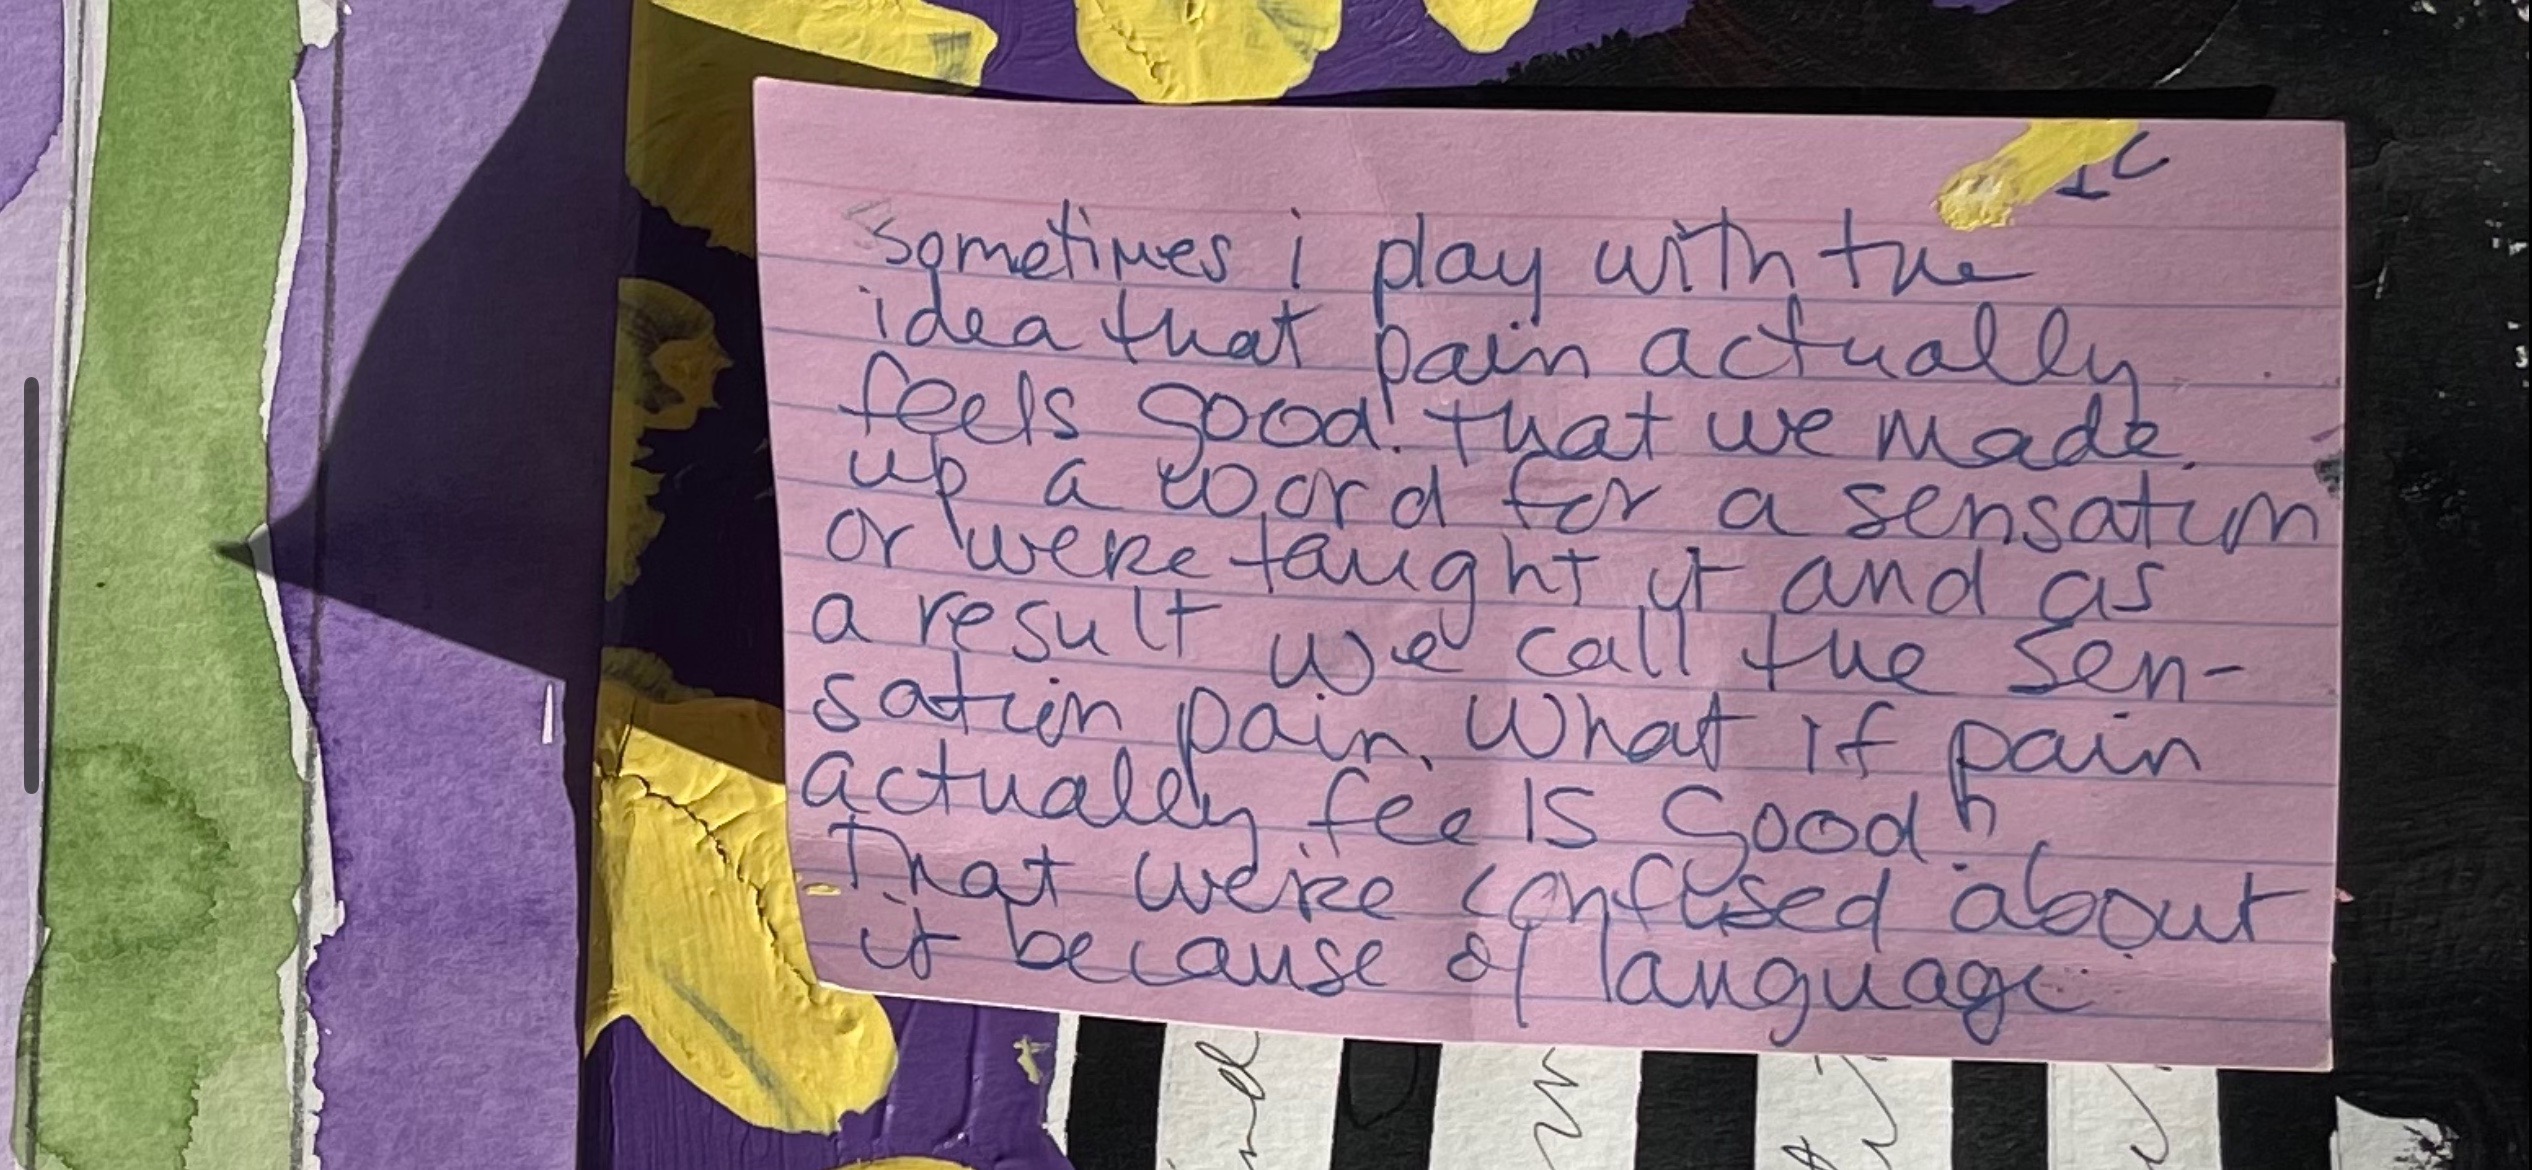 IC
sometimes i play with the
idea that pain actually
feels good. that we made
up a word for a sensation
or were taught it and as
a result we call the sen-
sation pain. What if pain
actually feels good?
That we're confused about
it because of language